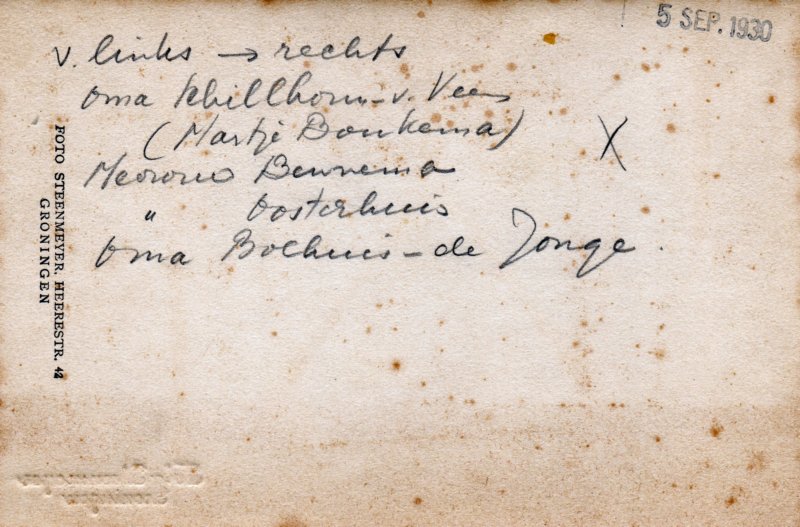 5 SEP. 1930
v. links → rechts
Oma Schillhorn - v. Veen
(Martje Bonkema)
X
Mevrouw Bennema
" Oosterhuis
Oma Bolhuis - de Jonge.
FOTO STEENMEYER, HEERESTR. 42
GRONINGEN
Groningen